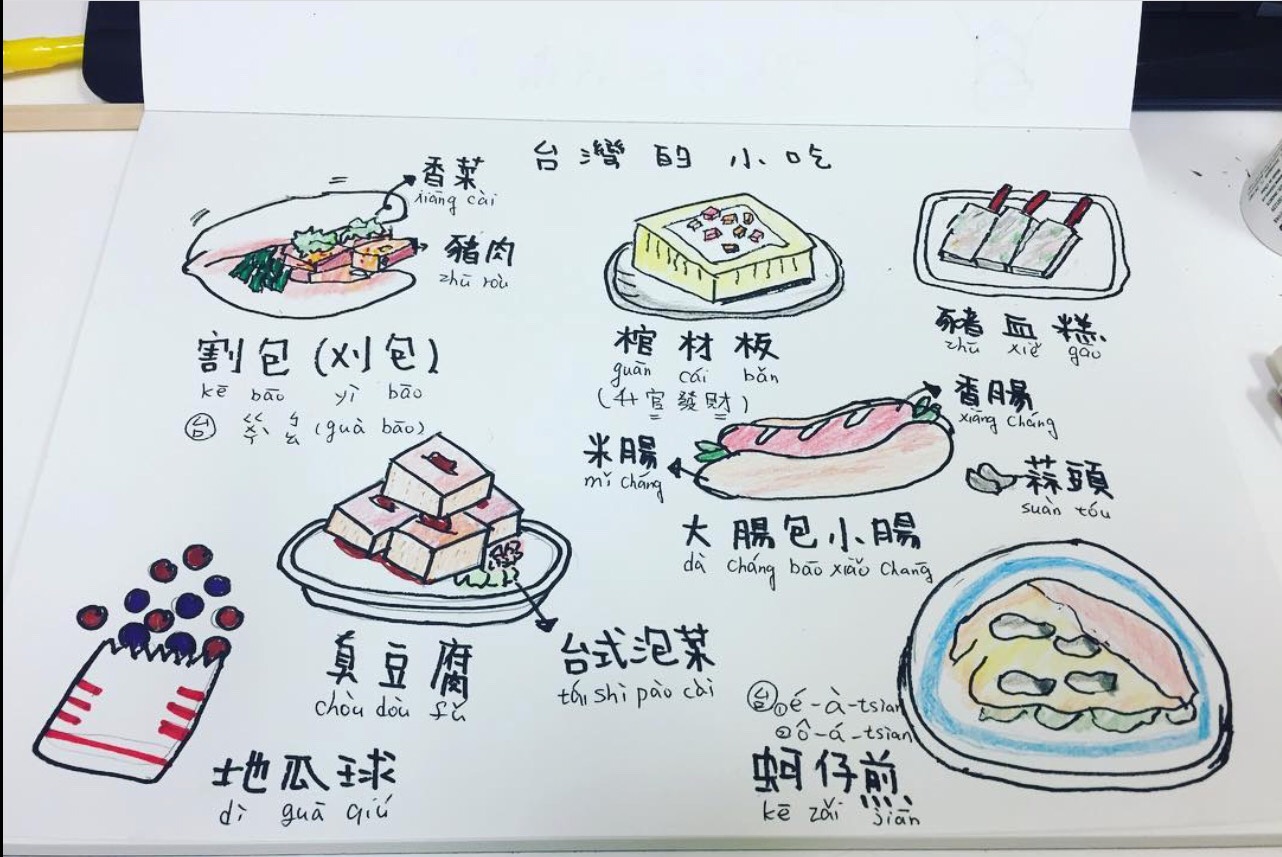 台灣的小吃
香菜
xiāng cài
豬肉
zhū ròu
割包(刈包)
kē bāo yì bāo
台 ㄍㄨㄚˋ ㄅㄠ (guà bāo)
棺材板
guān cái bǎn
(升官發財)
豬血糕
zhū xiě gāo
香腸
xiāng cháng
米腸
mǐ cháng
蒜頭
suàn tóu
大腸包小腸
dà cháng bāo xiǎo chang
臭豆腐
chòu dòu fǔ
台式泡菜
tái shì pào cài
地瓜球
dì guā qiú
台 ①é-à-tsian
②ô-á-tsian
蚵仔煎
kē zǎi jiān